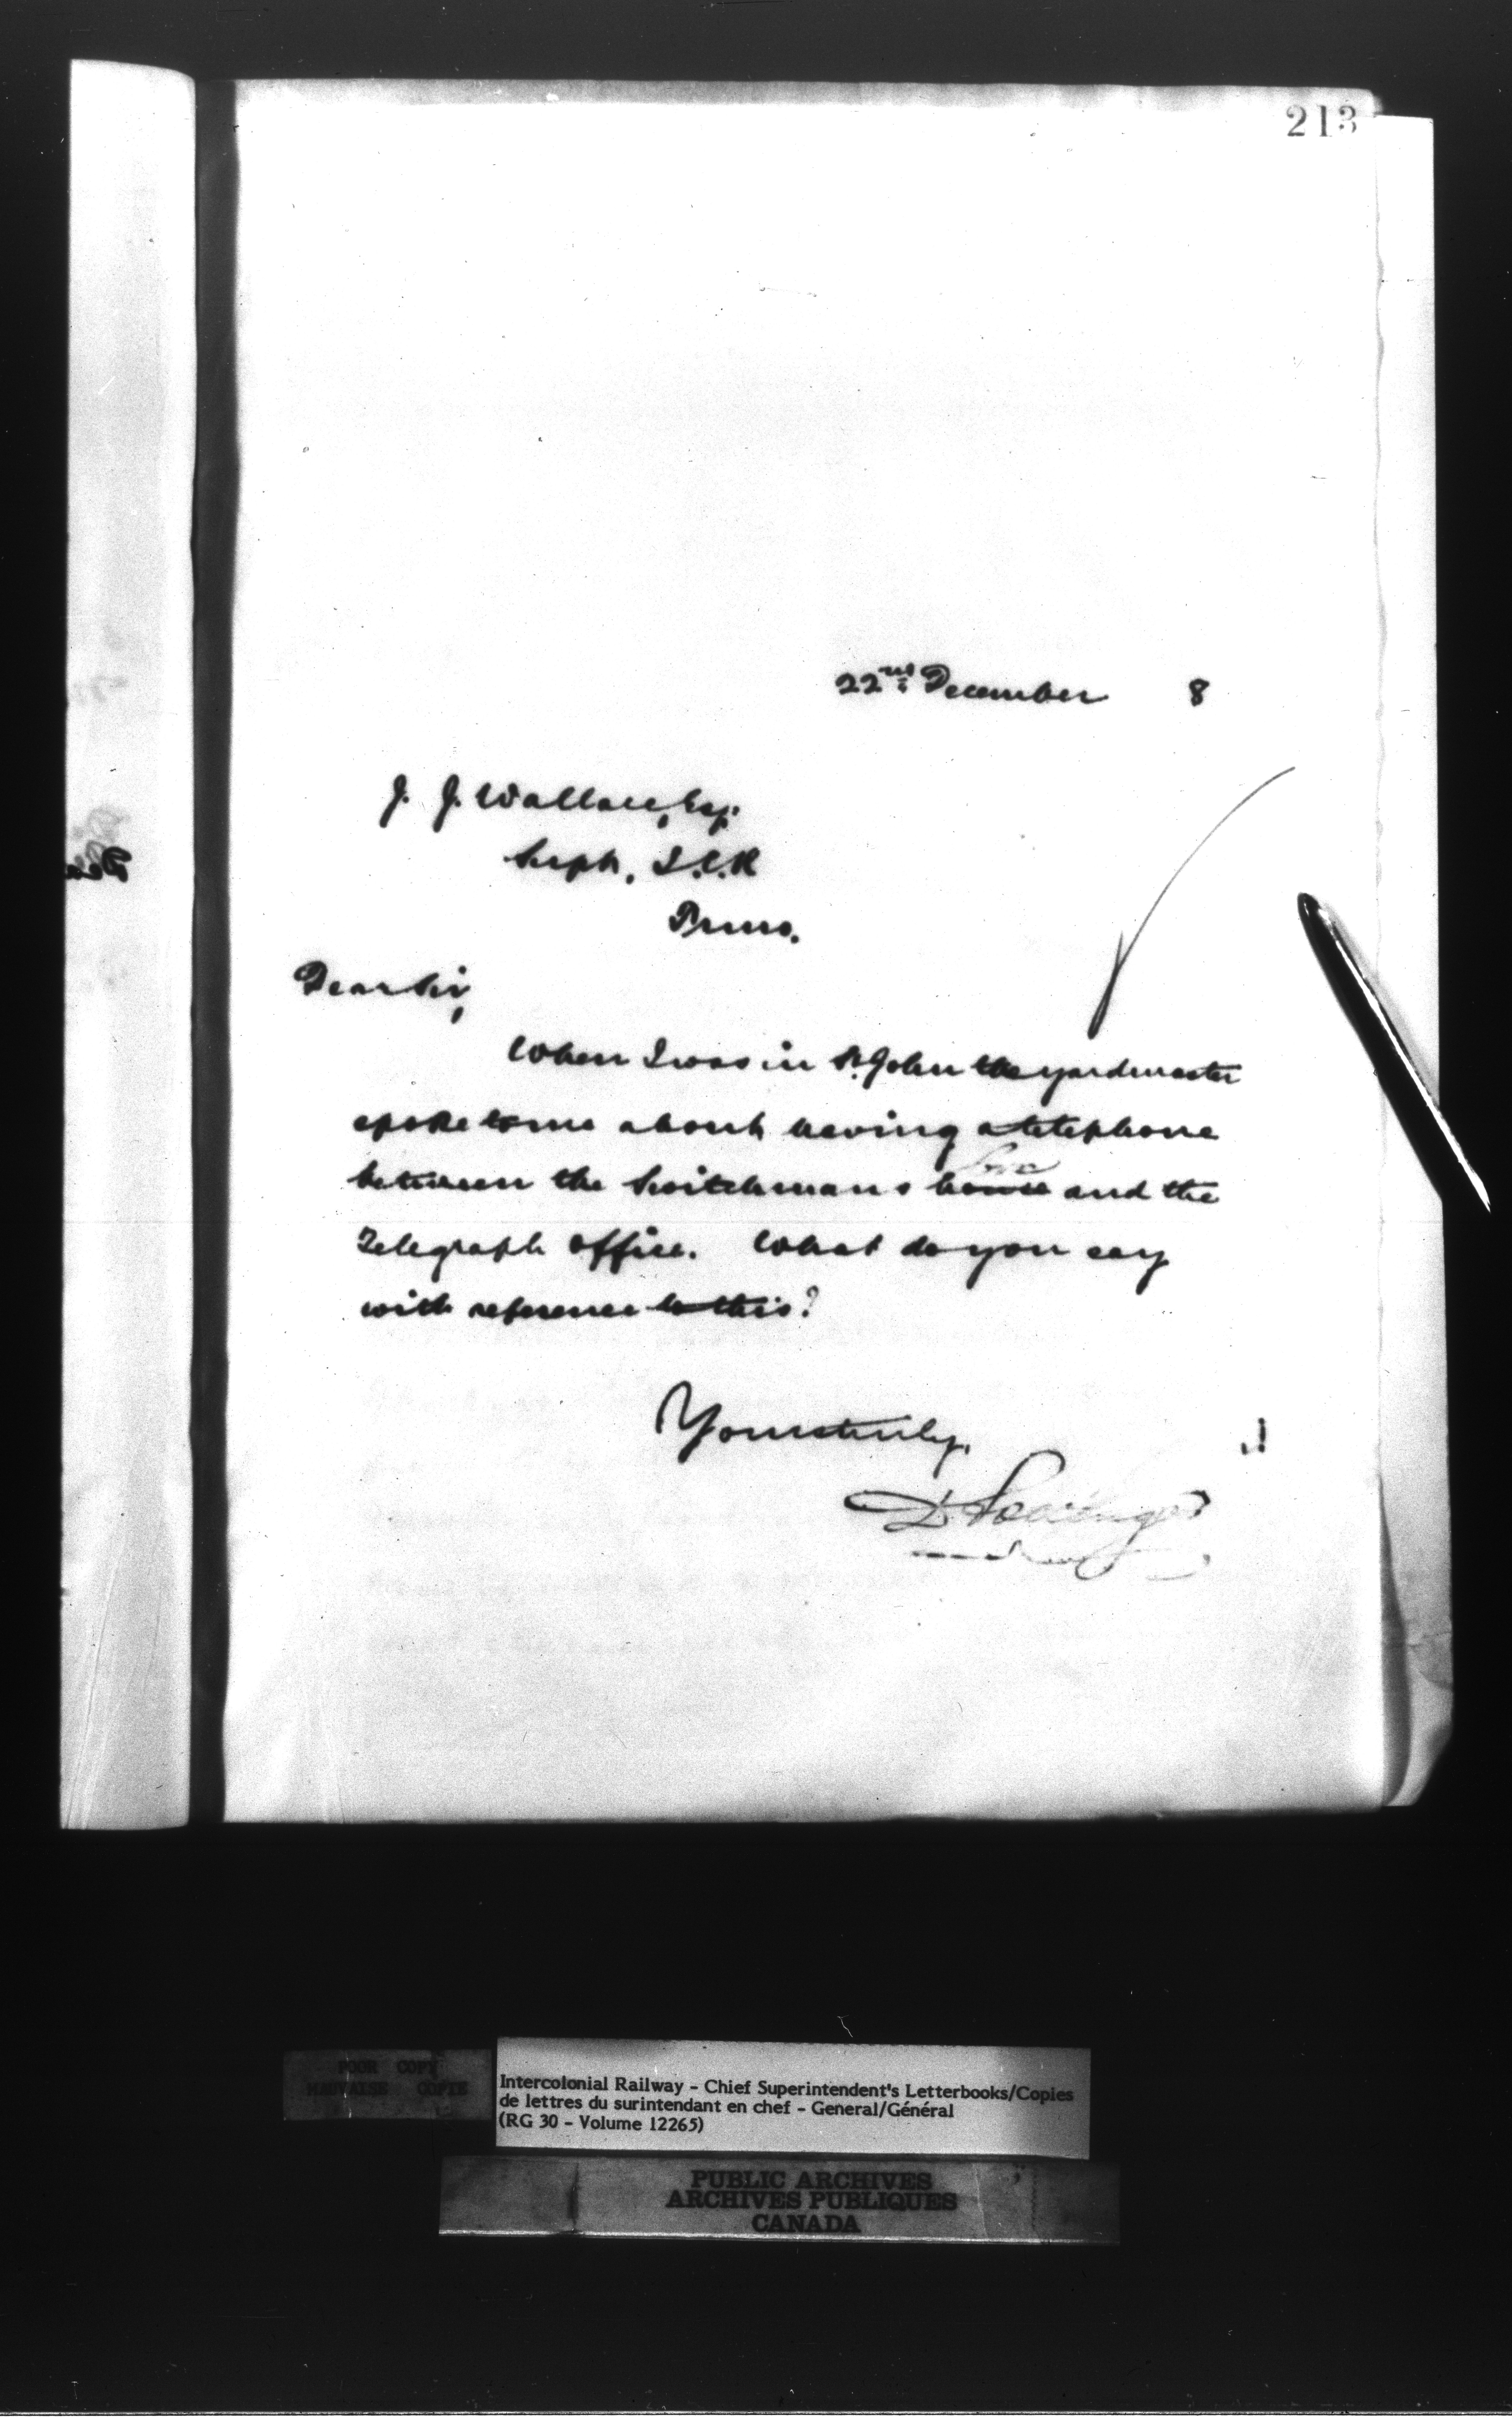 213
22nd December 8
J. J. Wallace, Esq.
Supt, I.C.R
Truro.
Dear Sir,
When I was in St. John the yardmaster
spoke to me about having a telephone
between the Switchmans house and the
Telegraph Office. What do you say
with reference to this?
Yours truly,
D Pottinger
POOR COPY
MAUVAISE COPIE
Intercolonial Railway - Chief Superintendent's Letterbooks/Copies
de lettres du surintendant en chef - General/Général
(RG 30 - Volume 12265)
PUBLIC ARCHIVES
ARCHIVES PUBLIQUES
CANADA